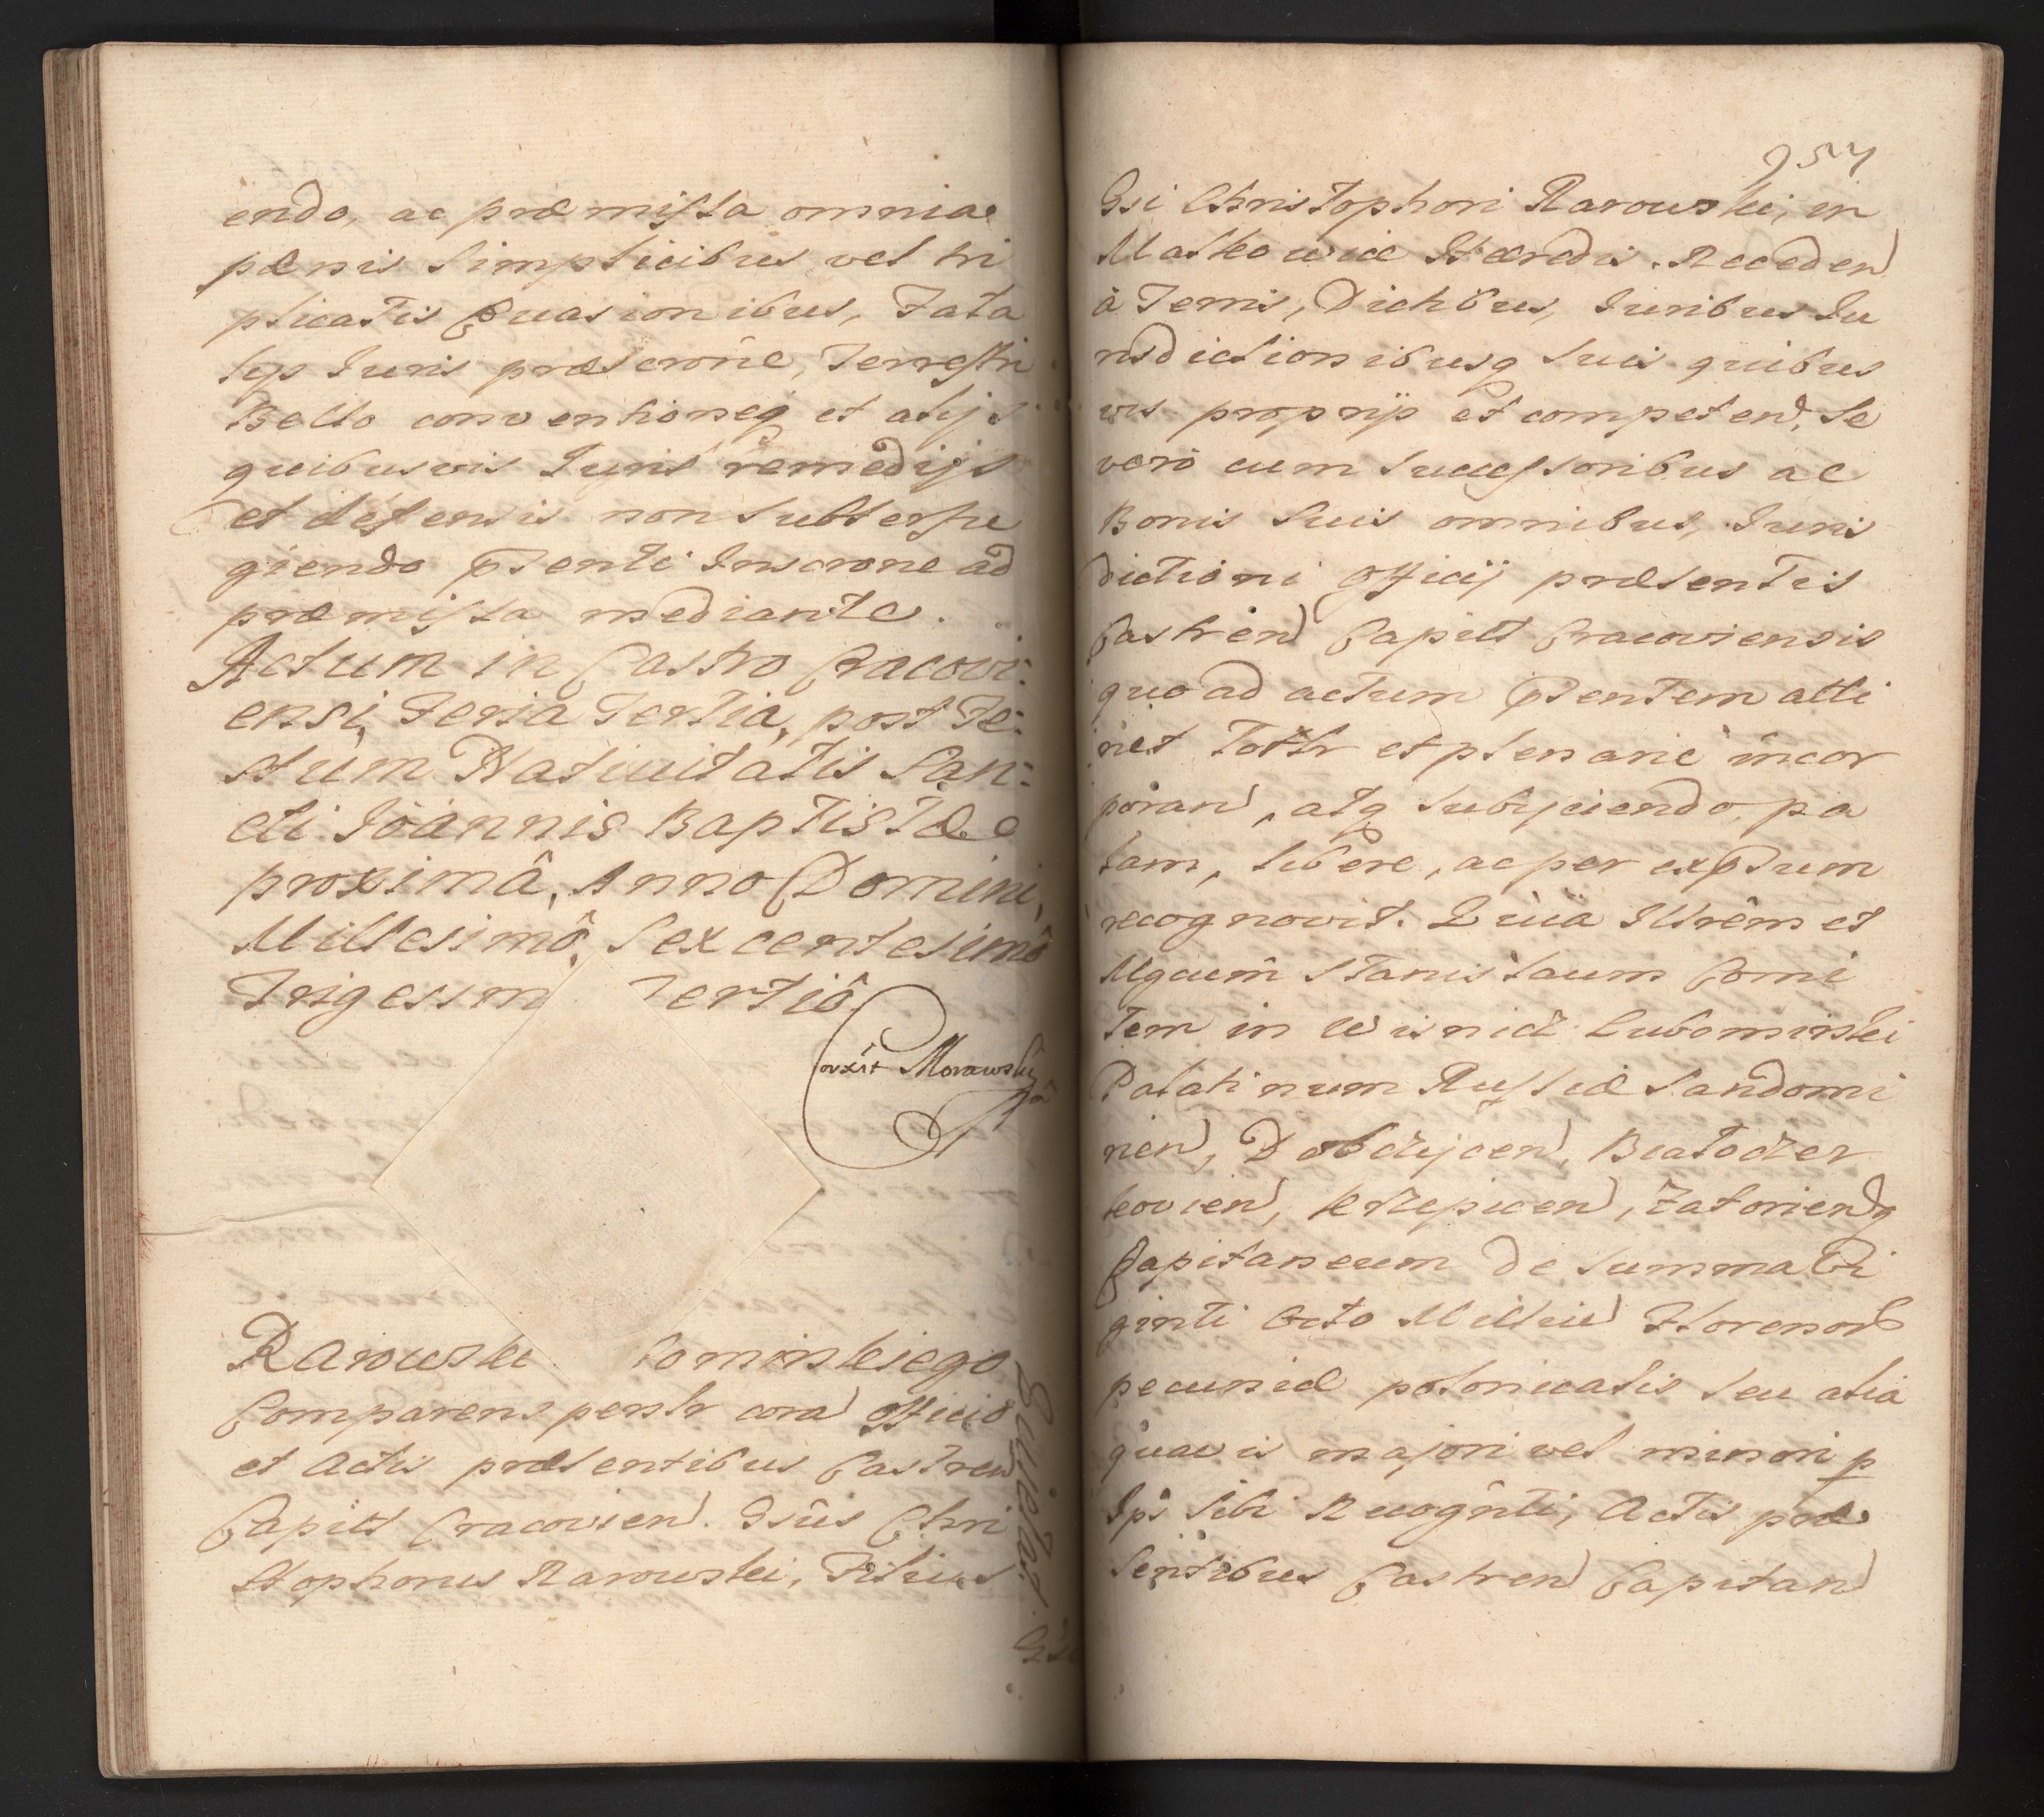 endo, ac præmissa omnia
pænis simplicibus vel tri
plicatis Evasionibus, Fata
lijs Iuris præscrõne, Terrestri
Bello conventioneq et alijs
quibusvis Iuris remedijs
et defensis non subterfu
giendo psenti Inscrone ad
præmissa mediante.
Actum in Castro Cracovi:
ensi, Feria Tertia, post Fe:
stum Nativitatis San:
cti Ioannis Baptistæ
proximâ, Anno Domini,
Millesimô, Sexcentesimô
Trigesim ertiô.
Corxit Morawski
Rarowski Lominskiego
Comparens persnlr corã Officio
et Actis præsentibus Castren
Capitt Cracovien. Gsûs Chri
stophorus Rarowski, Filius
Quietat
Gsi
957
Gsi Christophori Rarowski, in
Maskowice Hæredis. Recedend
à Terris, Districtibus, Iuribus Iu
risdictionibusq suis quibus
vis proprijs et competend, se
verò cum successoribus ac
Bonis suis omnibus, Iuris
dictioni Officij præsentis
Castren Capitt Cracoviensis
quo ad actum psentem atti
net Tottr et plenariè incor
porand, atq subijciendo, pa
lam, liberè, ac per expsum
recognovit. Quia Illrêm et
Mgcum Stanislaum Comi
tem in Wisnicz Lubomirski
Palatinum Russiæ Sandomi
rien, Dobczycen, Bialocer
kovien, Krzepicen, Zatorienq
Capitaneum de summa Vi
ginti Octo Millium Florenor
pecuniæ polonicalis seu alia
quavis majori vel minori p
Ips sibi Recogñti, Actis præ
sentibus Castren Capitan